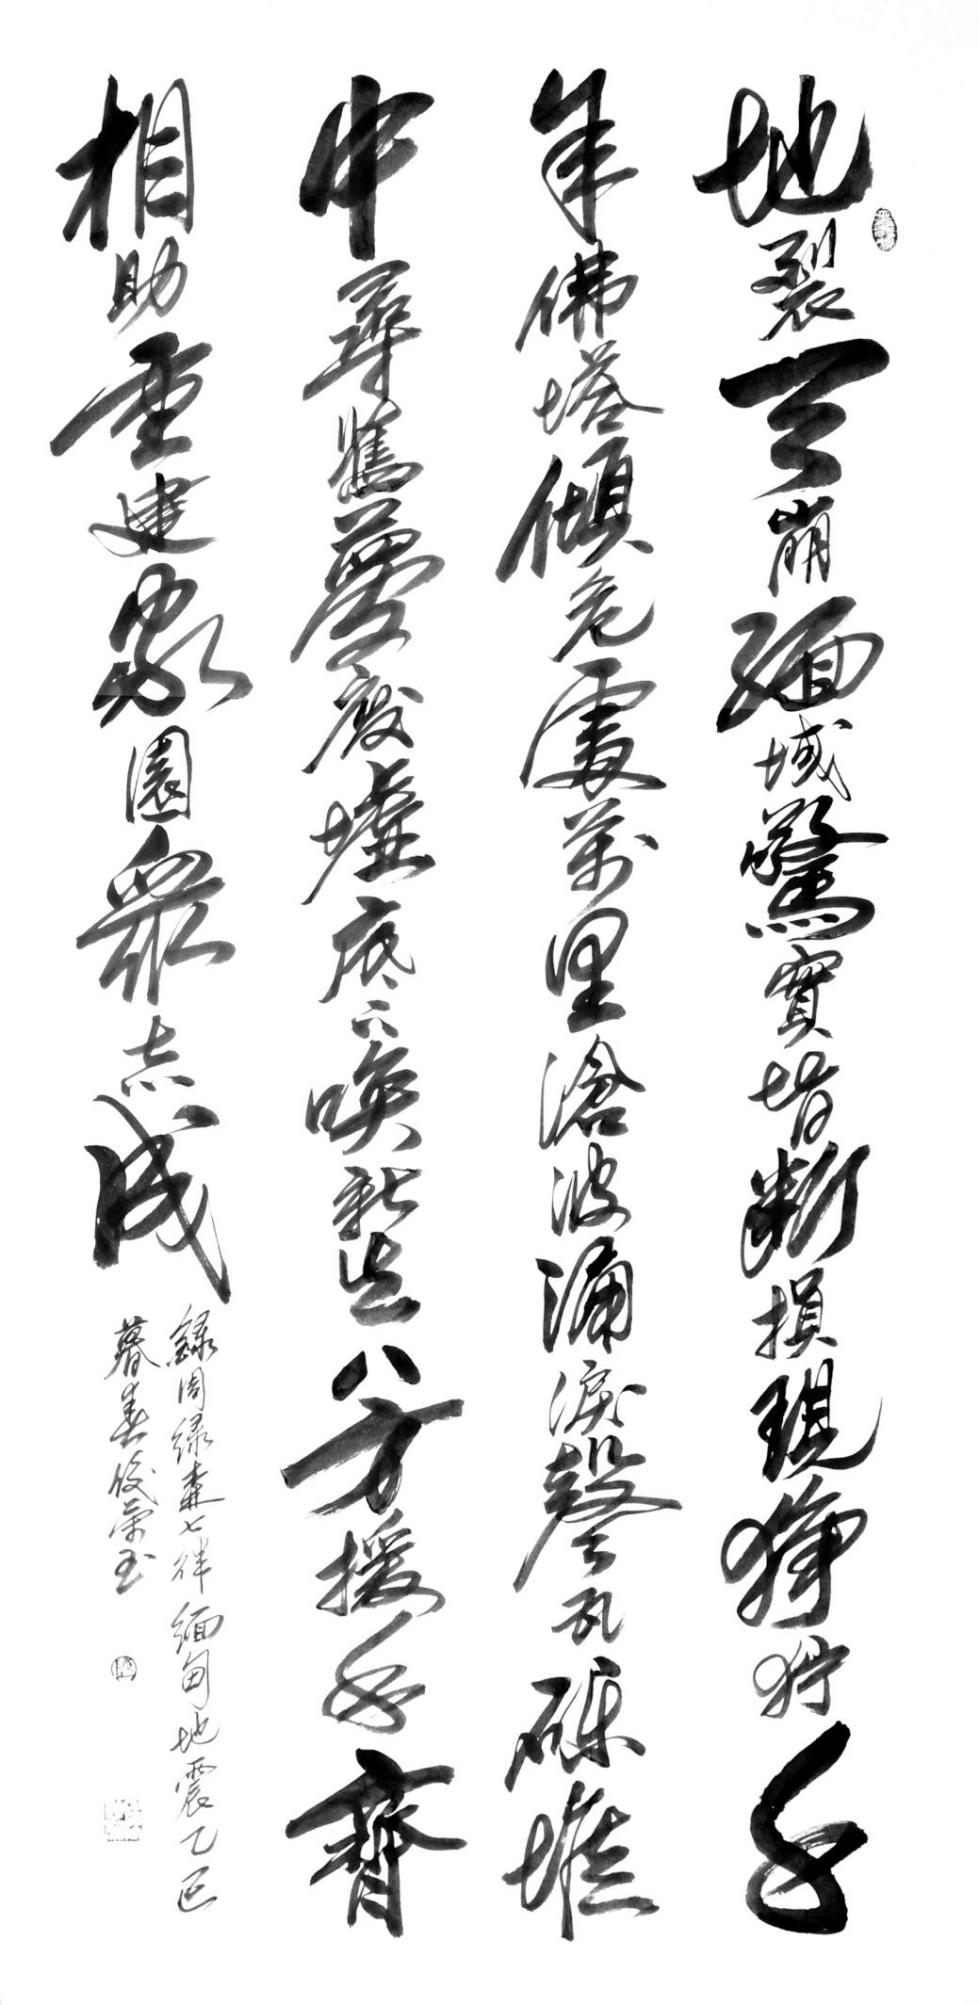 地裂天崩緬域驚實皆斷損現猙獰千
年佛塔傾危處萬里滄波涌淚聲瓦礫堆
中尋舊夢廢墟底下喚新生八方援手齊
相助重建家園眾志成
錄周綠森七律緬甸地震乙巳
暮春俊榮玉